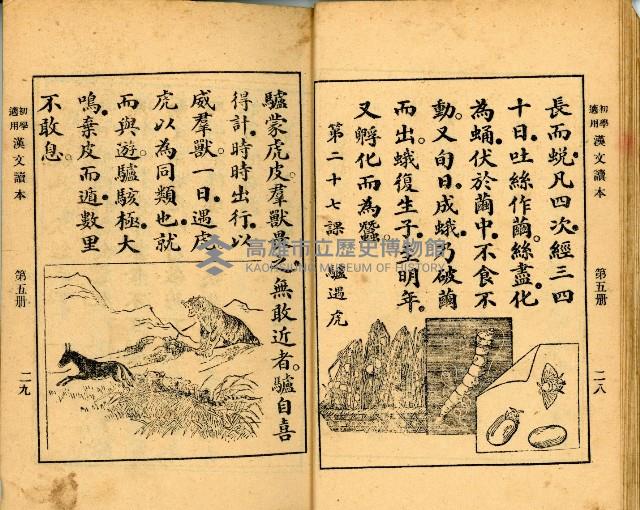 初學適用 漢文讀本 第五册 二八
長而蛻。凡四次。經三四
十日。吐絲作繭。絲盡。化
為蛹。伏於繭中。不食不
動。又旬日。成蛾。乃破繭
而出。蛾復生子。至明年。
又孵化而為蠶。
第二十七課 驢遇虎
驢蒙虎皮。羣獸畏之。無敢近者。驢自喜
得計。時時出行。以
威羣獸。一日。遇虎
虎以為同類也。就
而與遊。驢駭極。大
鳴。棄皮而遁。數里
不敢息。
初學適用 漢文讀本 第五册 二九
高雄市立歷史博物館
KAOHSIUNG MUSEUM OF HISTORY